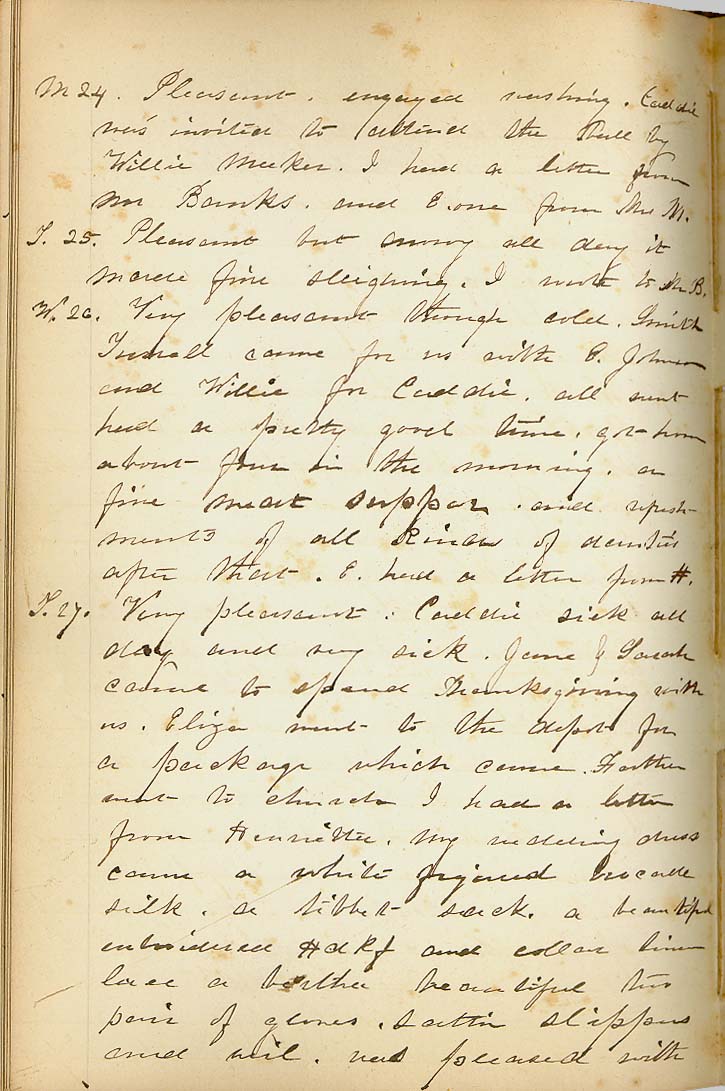 M 24. Pleasant. engaged washing. Caddie
was invited to attend the Ball by
Willie Meeker. I had a letter from
Mr Banks. and E. one from Mr M.
T. 25. Pleasant but snowy all day it
made fine sleighing. I wrote to Mr B.
W. 26. Very pleasant though cold. Smith
came for us with C. Johnson
and Willie for Caddie. all went
had a pretty good time. got home
about four in the morning. a
fine meat supper. and refresh-
ments of all kinds of dainties
after that. E. had a letter from H.
T. 27. Very pleasant. Caddie sick all
day and very sick. Jane & Sarah
came to spend Thanksgiving with
us. Eliza went to the depot for
a package which came. Father
went to church I had a letter
from Henrietta. my wedding dress
came a white figured brocade
silk. a tibbet sack. a beautiful
embroidered Hdkf and collar linen
lace a bertha beautiful two
pair of gloves. sattin slippers
and veil. was pleased with